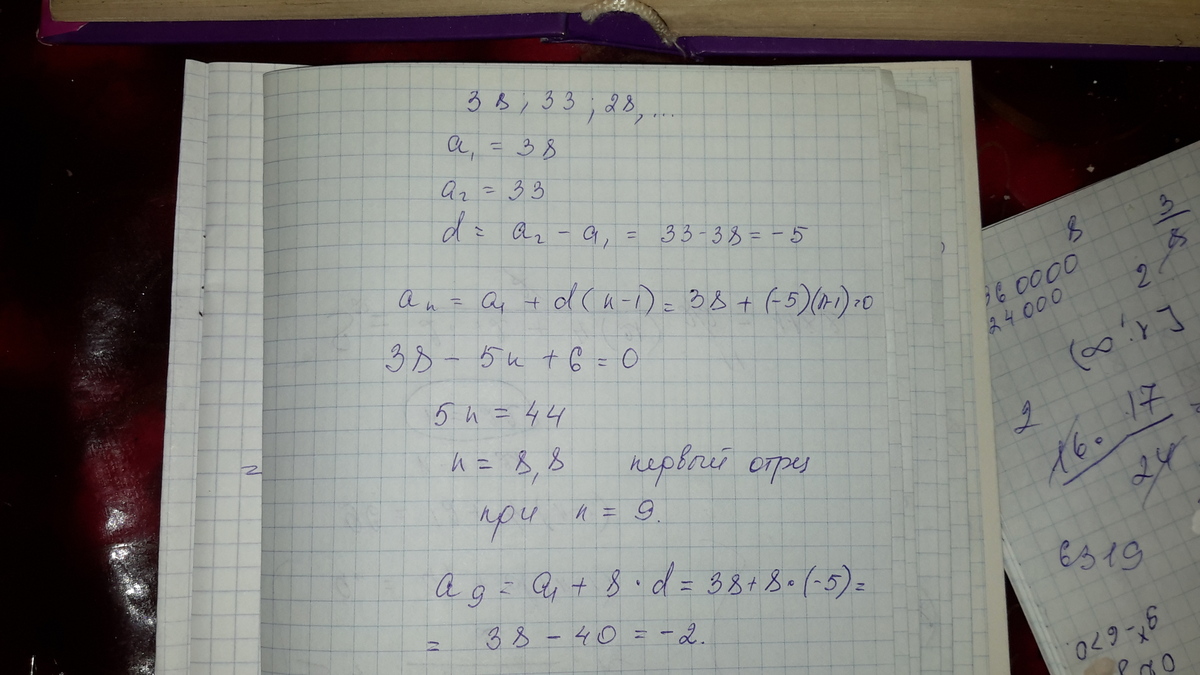 38; 33; 28, ...
a₁ = 38
a₂ = 33
d = a₂ - a₁ = 33-38 = -5
aₙ = a₁ + d(n-1) = 38 + (-5)(n-1) = 0
38 - 5n + 6 = 0
5n = 44
n = 8,8 первый отриц
при n = 9.
a₉ = a₁ + 8 · d = 38 + 8 · (-5) =
= 38 - 40 = -2.
=
8 3/8
360000 2
24000
2 16 · 17
24
6319
9x-6>0